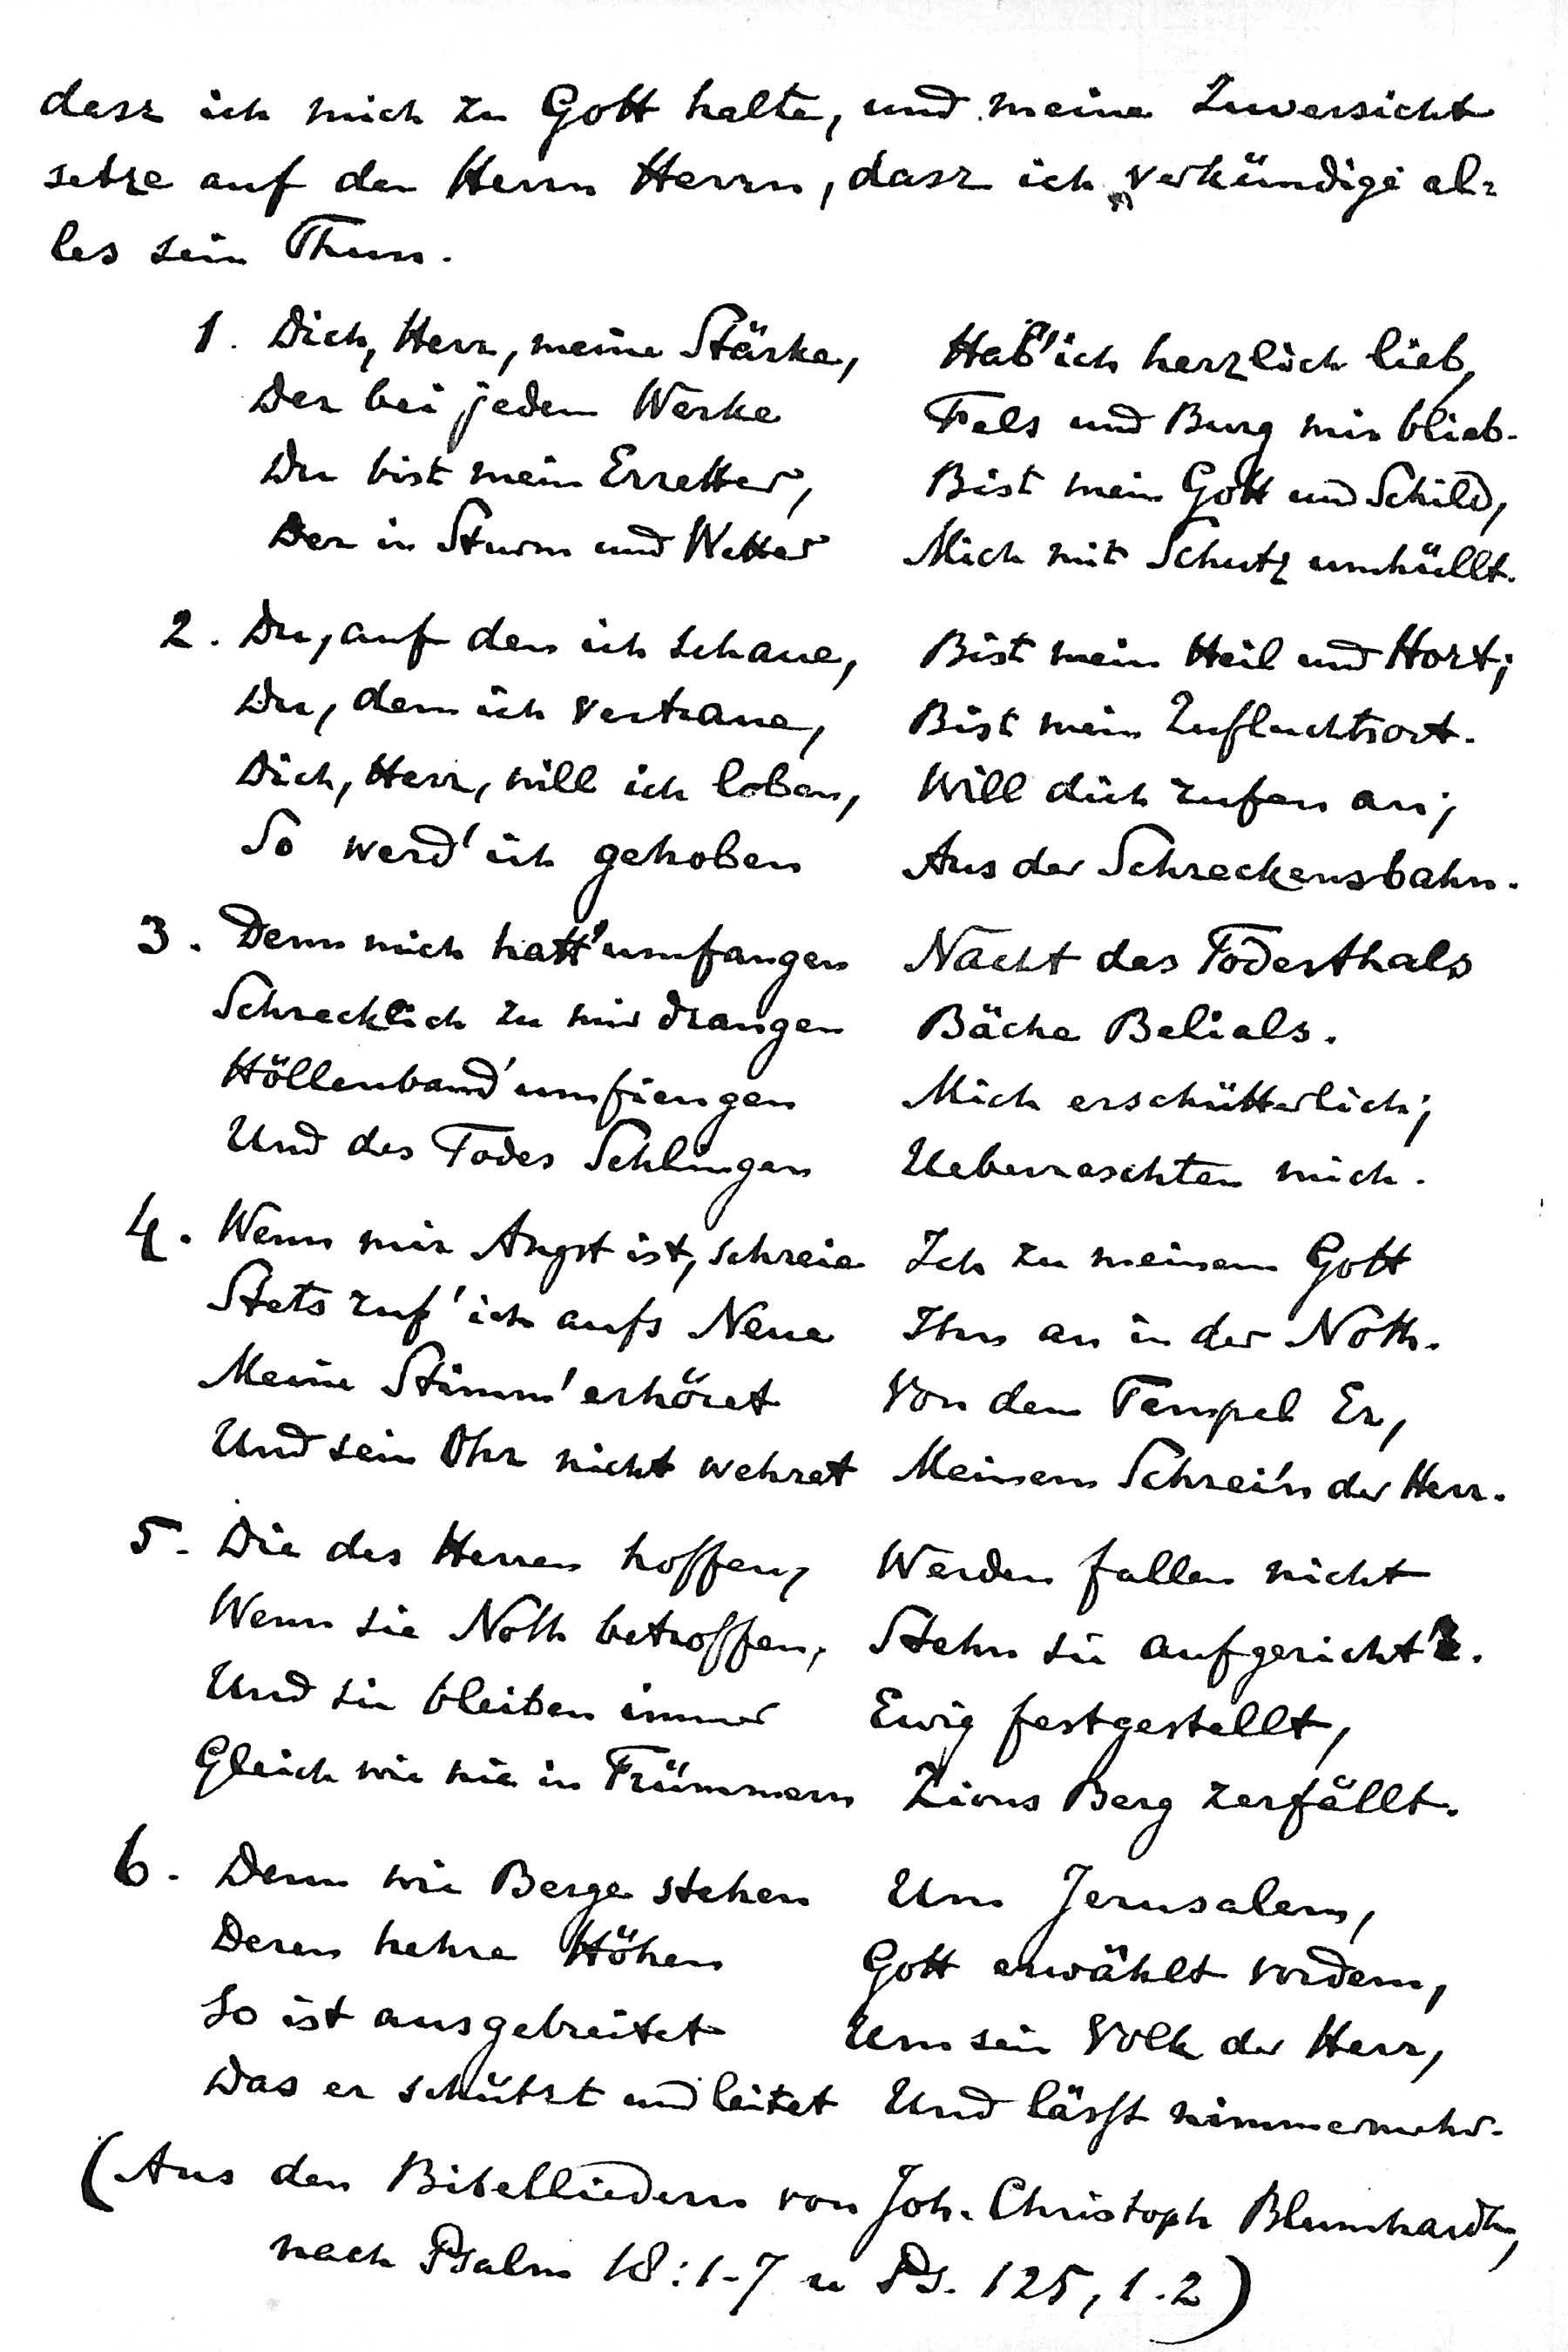 dasz ich mich zu Gott halte, und meine Zuversicht
setze auf den Herrn Herrn, dasz ich verkündige al-
les sein Thun.
1. Dich, Herr, meine Stärke, Hab' ich herzlich lieb,
Der bei jedem Werke Fels und Burg mir blieb.
Du bist mein Erretter, Bist mein Gott und Schild,
Der in Sturm und Wetter Mich mit Schutz umhüllt.
2. Du, auf den ich schaue, Bist mein Heil und Hort;
Du, dem ich vertraue, Bist mein Zufluchtsort.
Dich, Herr, will ich loben, Will dich rufen an;
So werd' ich gehoben Aus der Schreckensbahn.
3. Denn mich hatt' umfangen Nacht des Todesthals
Schrecklich zu mir drangen Bäche Belials.
Höllenband' umfiengen Mich erschütterlich;
Und des Todes Schlingen Ueberraschten mich.
4. Wenn mir Angst ist, schreie Ich zu meinem Gott
Stets ruf' ich aufs Neue Ihn an in der Noth.
Meine Stimm' erhöret Von dem Tempel Er,
Und sein Ohr nicht wehret Meinem Schrei'n der Herr.
5. Die des Herren hoffen, Werden fallen nicht
Wenn sie Noth betroffen, Stehn sie aufgericht't.
Und sie bleiben immer Ewig festgestellt,
Gleich wie nie in Trümmern Zions Berg zerfällt.
6. Denn wie Berge stehen Um Jerusalem,
Deren hehre Höhen Gott erwählt vordem,
So ist ausgebreitet Um sein Volk der Herr,
Das er schützt und leitet Und läszt nimmermehr.
(Aus den Bibelliedern von Joh. Christoph Blumhardt,
nach Psalm 18:1-7 u Ps. 125, 1.2)